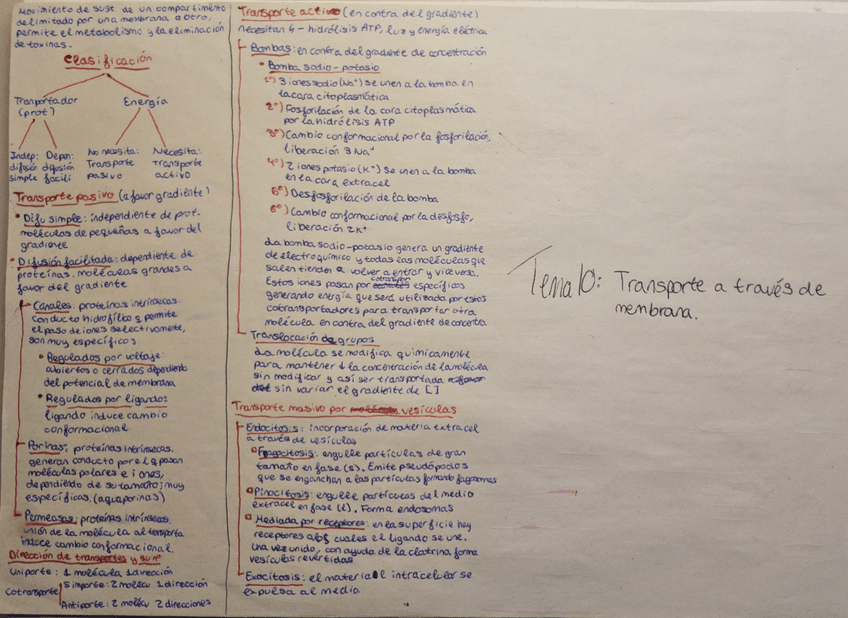 Movimiento de sust de un compartimento
delimitado por una membrana a otro,
permite el metabolismo y la eliminación
de toxinas.
Clasificación
Tranportador
(prot)
Energía
Indep:
difusión
simple
Depen:
difusión
facili
No necesita:
Transporte
pasivo
Necesita:
Transporte
activo
Transporte pasivo (a favor gradiente)
• Difu simple: independiente de prot.
moléculas de pequeñas a favor del
gradiente
• Difusión facilitada: dependiente de
proteínas. moléculas grandes a
favor del gradiente
Canales: proteínas intrínsecas.
conducto hidrofílico q permite
el paso de iones selectivamente,
son muy específicos
• Regulados por voltaje:
abiertos o cerrados dependiendo
del potencial de membrana
• Regulados por ligando:
ligando induce cambio
conformacional
Porinas: proteínas intrínsecas.
generan conducto por el q pasan
moléculas polares e iones,
dependiendo de su tamaño; muy
específicas. (aquaporinas)
Permeasas: proteínas intrínsecas.
unión de la molécula al transpo
induce cambio conformacional.
Dirección de transportes y sum
Uniporte: 1 molécula 1 dirección
Cotransporte
Simporte: 2 molécu 1 dirección
Antiporte: 2 molécu 2 direcciones
Transporte activo (en contra del gradiente)
necesitan 6- hidrólisis ATP, luz y energía elétrica
Bombas: en contra del gradiente de concentración
• Bomba sodio-potasio
1º) 3 iones sodio (Na⁺) se unen a la bomba en
la cara citoplasmática
2º) Fosforilación de la cara citoplasmática
por la hidrólisis ATP
3º) Cambio conformacional por la fosforilación,
liberación 3 Na⁺
4º) 2 iones potasio (K⁺) se unen a la bomba
en la cara extracel
5º) Desfosforilación de la bomba
6º) Cambio conformacional por la desfosfo,
liberación 2K⁺
La bomba sodio-potasio genera un gradiente
de electroquímico y todas las moléculas que
salen tienden a volver a entrar y viceversa.
Estos iones pasan por cotranspor específicos
generando energía que será utilizada por estos
cotransportadores para transportar otra
molécula en contra del gradiente de concentra
Translocación de grupos
La molécula se modifica químicamente
para mantener ↓ la concentración de la molécula
sin modificar y así ser transportada a favor
del sin variar el gradiente de []
Transporte masivo por vesículas
Endocitosis: incorporación de materia extracel
a través de vesículas
Fagocitosis: engulle partículas de gran
tamaño en fase (s). Emite pseudópodos
que se enganchan a las partículas formando fagosomas
Pinocitosis: engulle partículas del medio
extracel en fase (l). Forma endosomas
Mediada por receptores: en la superficie hay
receptores a los cuales el ligando se une.
Una vez unido, con ayuda de la clatrina forma
vesículas revertidas
Exocitosis: el material intracelular se
expulsa al medio
Tema 10: Transporte a través de
membrana.